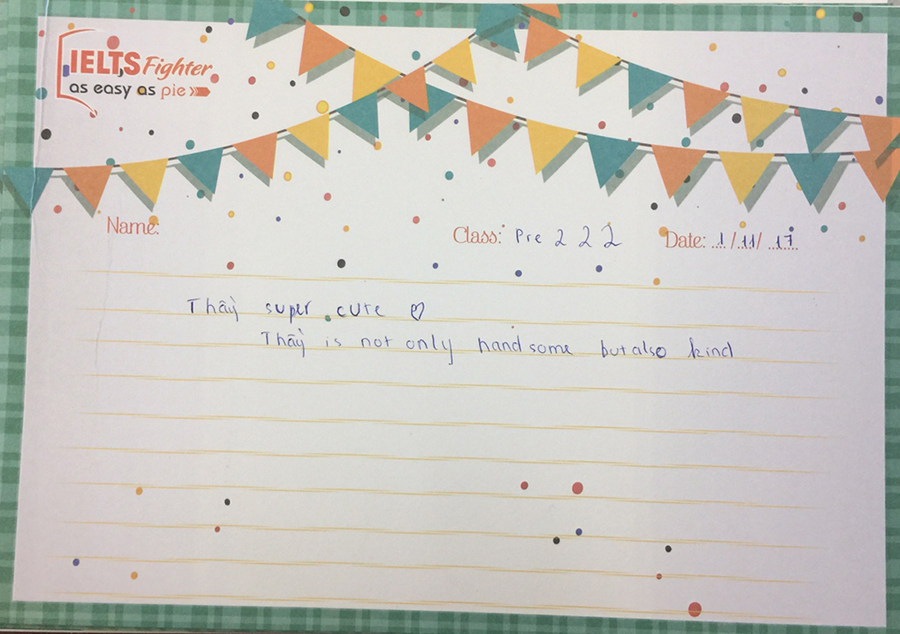 IELTS Fighter
as easy as pie
Name:
Class: Pre 222 Date: 1/11/17
Thầy super cute ♡
Thầy is not only handsome but also kind